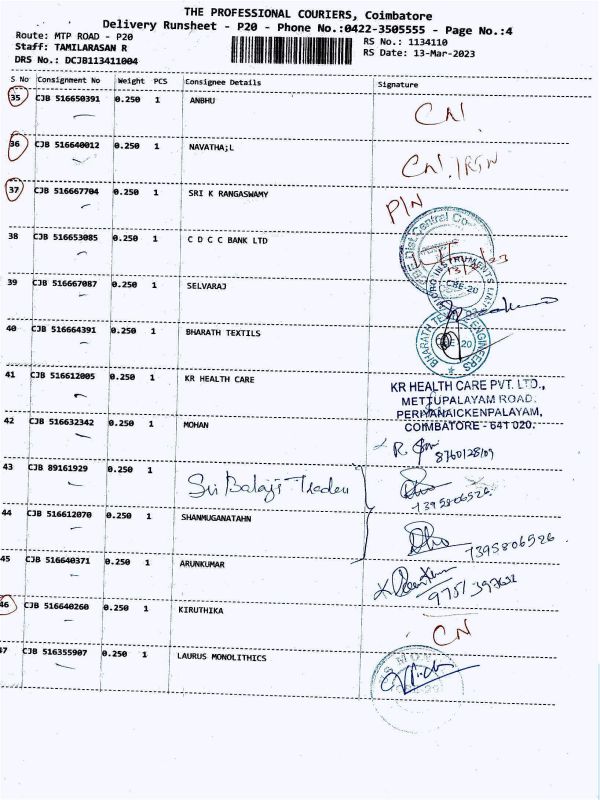 THE PROFESSIONAL COURIERS, Coimbatore
Delivery Runsheet - P20 - Phone No.:0422-3505555 - Page No.:4
Route: MTP ROAD - P20
Staff: TAMILARASAN R
DRS No.: DCJB113411004
RS No.: 1134110
RS Date: 13-Mar-2023
S No Consignment No Weight PCS Consignee Details Signature
35 CJB 516650391 0.250 1 ANBHU
36 CJB 516640012 0.250 1 NAVATHA;L
37 CJB 516667704 0.250 1 SRI K RANGASWAMY P/N
38 CJB 516653085 0.250 1 C D C C BANK LTD
Dist Central Co
39 CJB 516667087 0.250 1 SELVARAJ
CBE-20
40 CJB 516664391 0.250 1 BHARATH TEXTILS
BHARATH ENGINEERS
20
41 CJB 516612005 0.250 1 KR HEALTH CARE
KR HEALTH CARE PVT. LTD.,
METTUPALAYAM ROAD,
PERIYANAICKENPALAYAM,
COIMBATORE - 641 020.
42 CJB 516632342 0.250 1 MOHAN
8760128109
43 CJB 89161929 0.250 1 Sri Balaji Traders
7395806526
44 CJB 516612070 0.250 1 SHANMUGANATAHN
7395806526
45 CJB 516640371 0.250 1 ARUNKUMAR
46 CJB 516640260 0.250 1 KIRUTHIKA CN
47 CJB 516355907 0.250 1 LAURUS MONOLITHICS